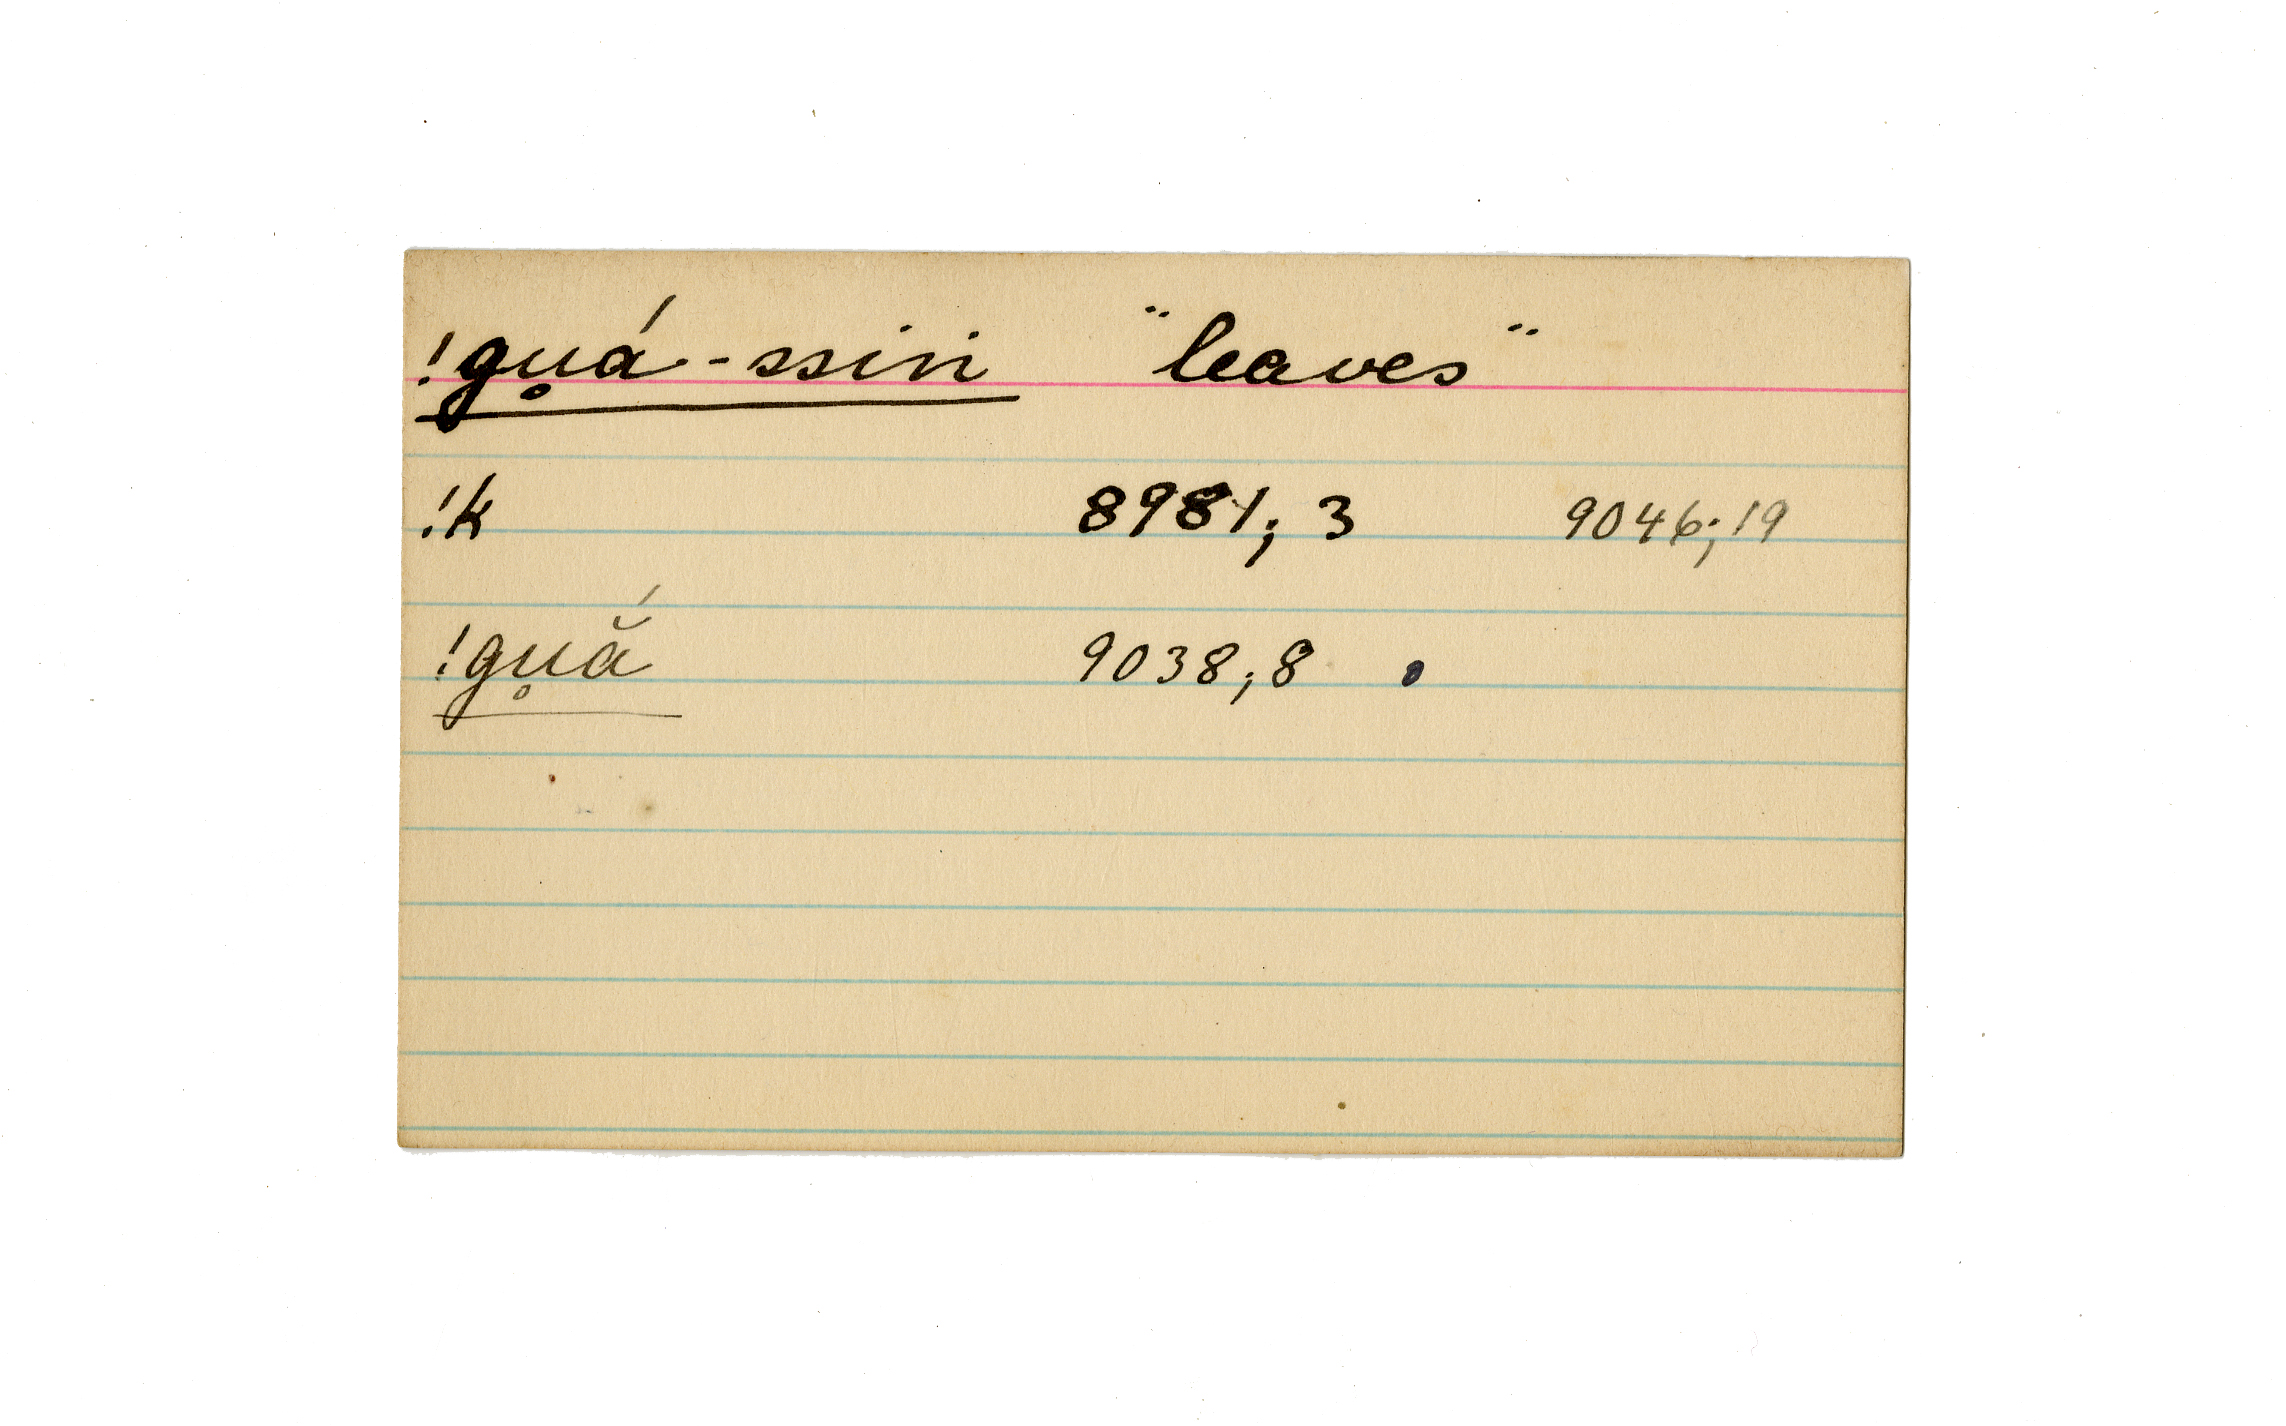 !gu̥á-ssiri "leaves"
!k 8981; 3 9046; 19
!gu̥ắ 9038; 8